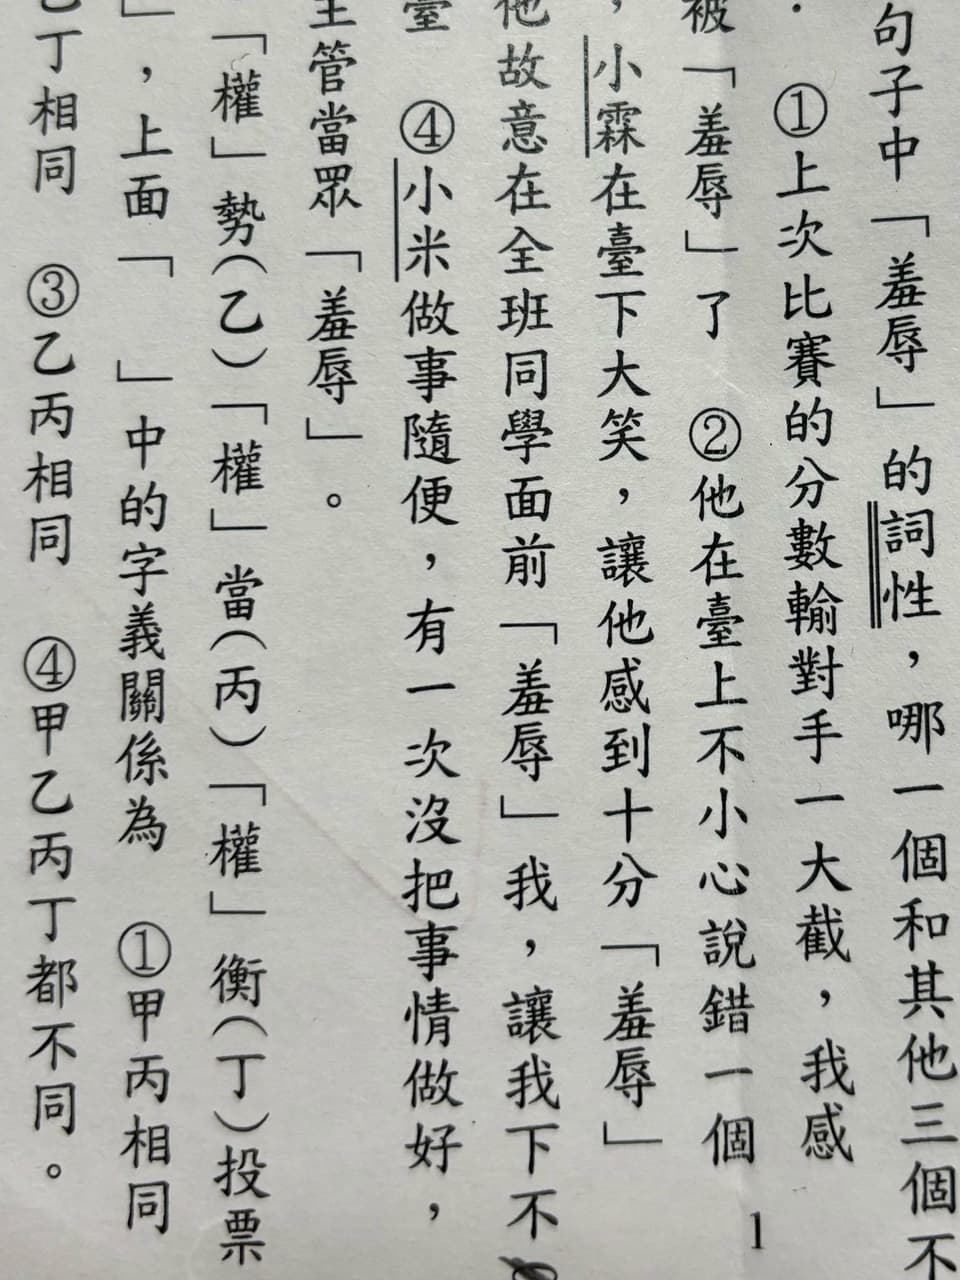 句子中「羞辱」的詞性，哪一個和其他三個不
．①上次比賽的分數輸對手一大截，我感
被「羞辱」了　②他在臺上不小心說錯一個
，小霖在臺下大笑，讓他感到十分「羞辱」
他故意在全班同學面前「羞辱」我，讓我下不
臺　④小米做事隨便，有一次沒把事情做好，
主管當眾「羞辱」。
「權」勢（乙）「權」當（丙）「權」衡（丁）投票
」，上面「　」中的字義關係為　①甲丙相同
乙丁相同　③乙丙相同　④甲乙丙丁都不同。
1